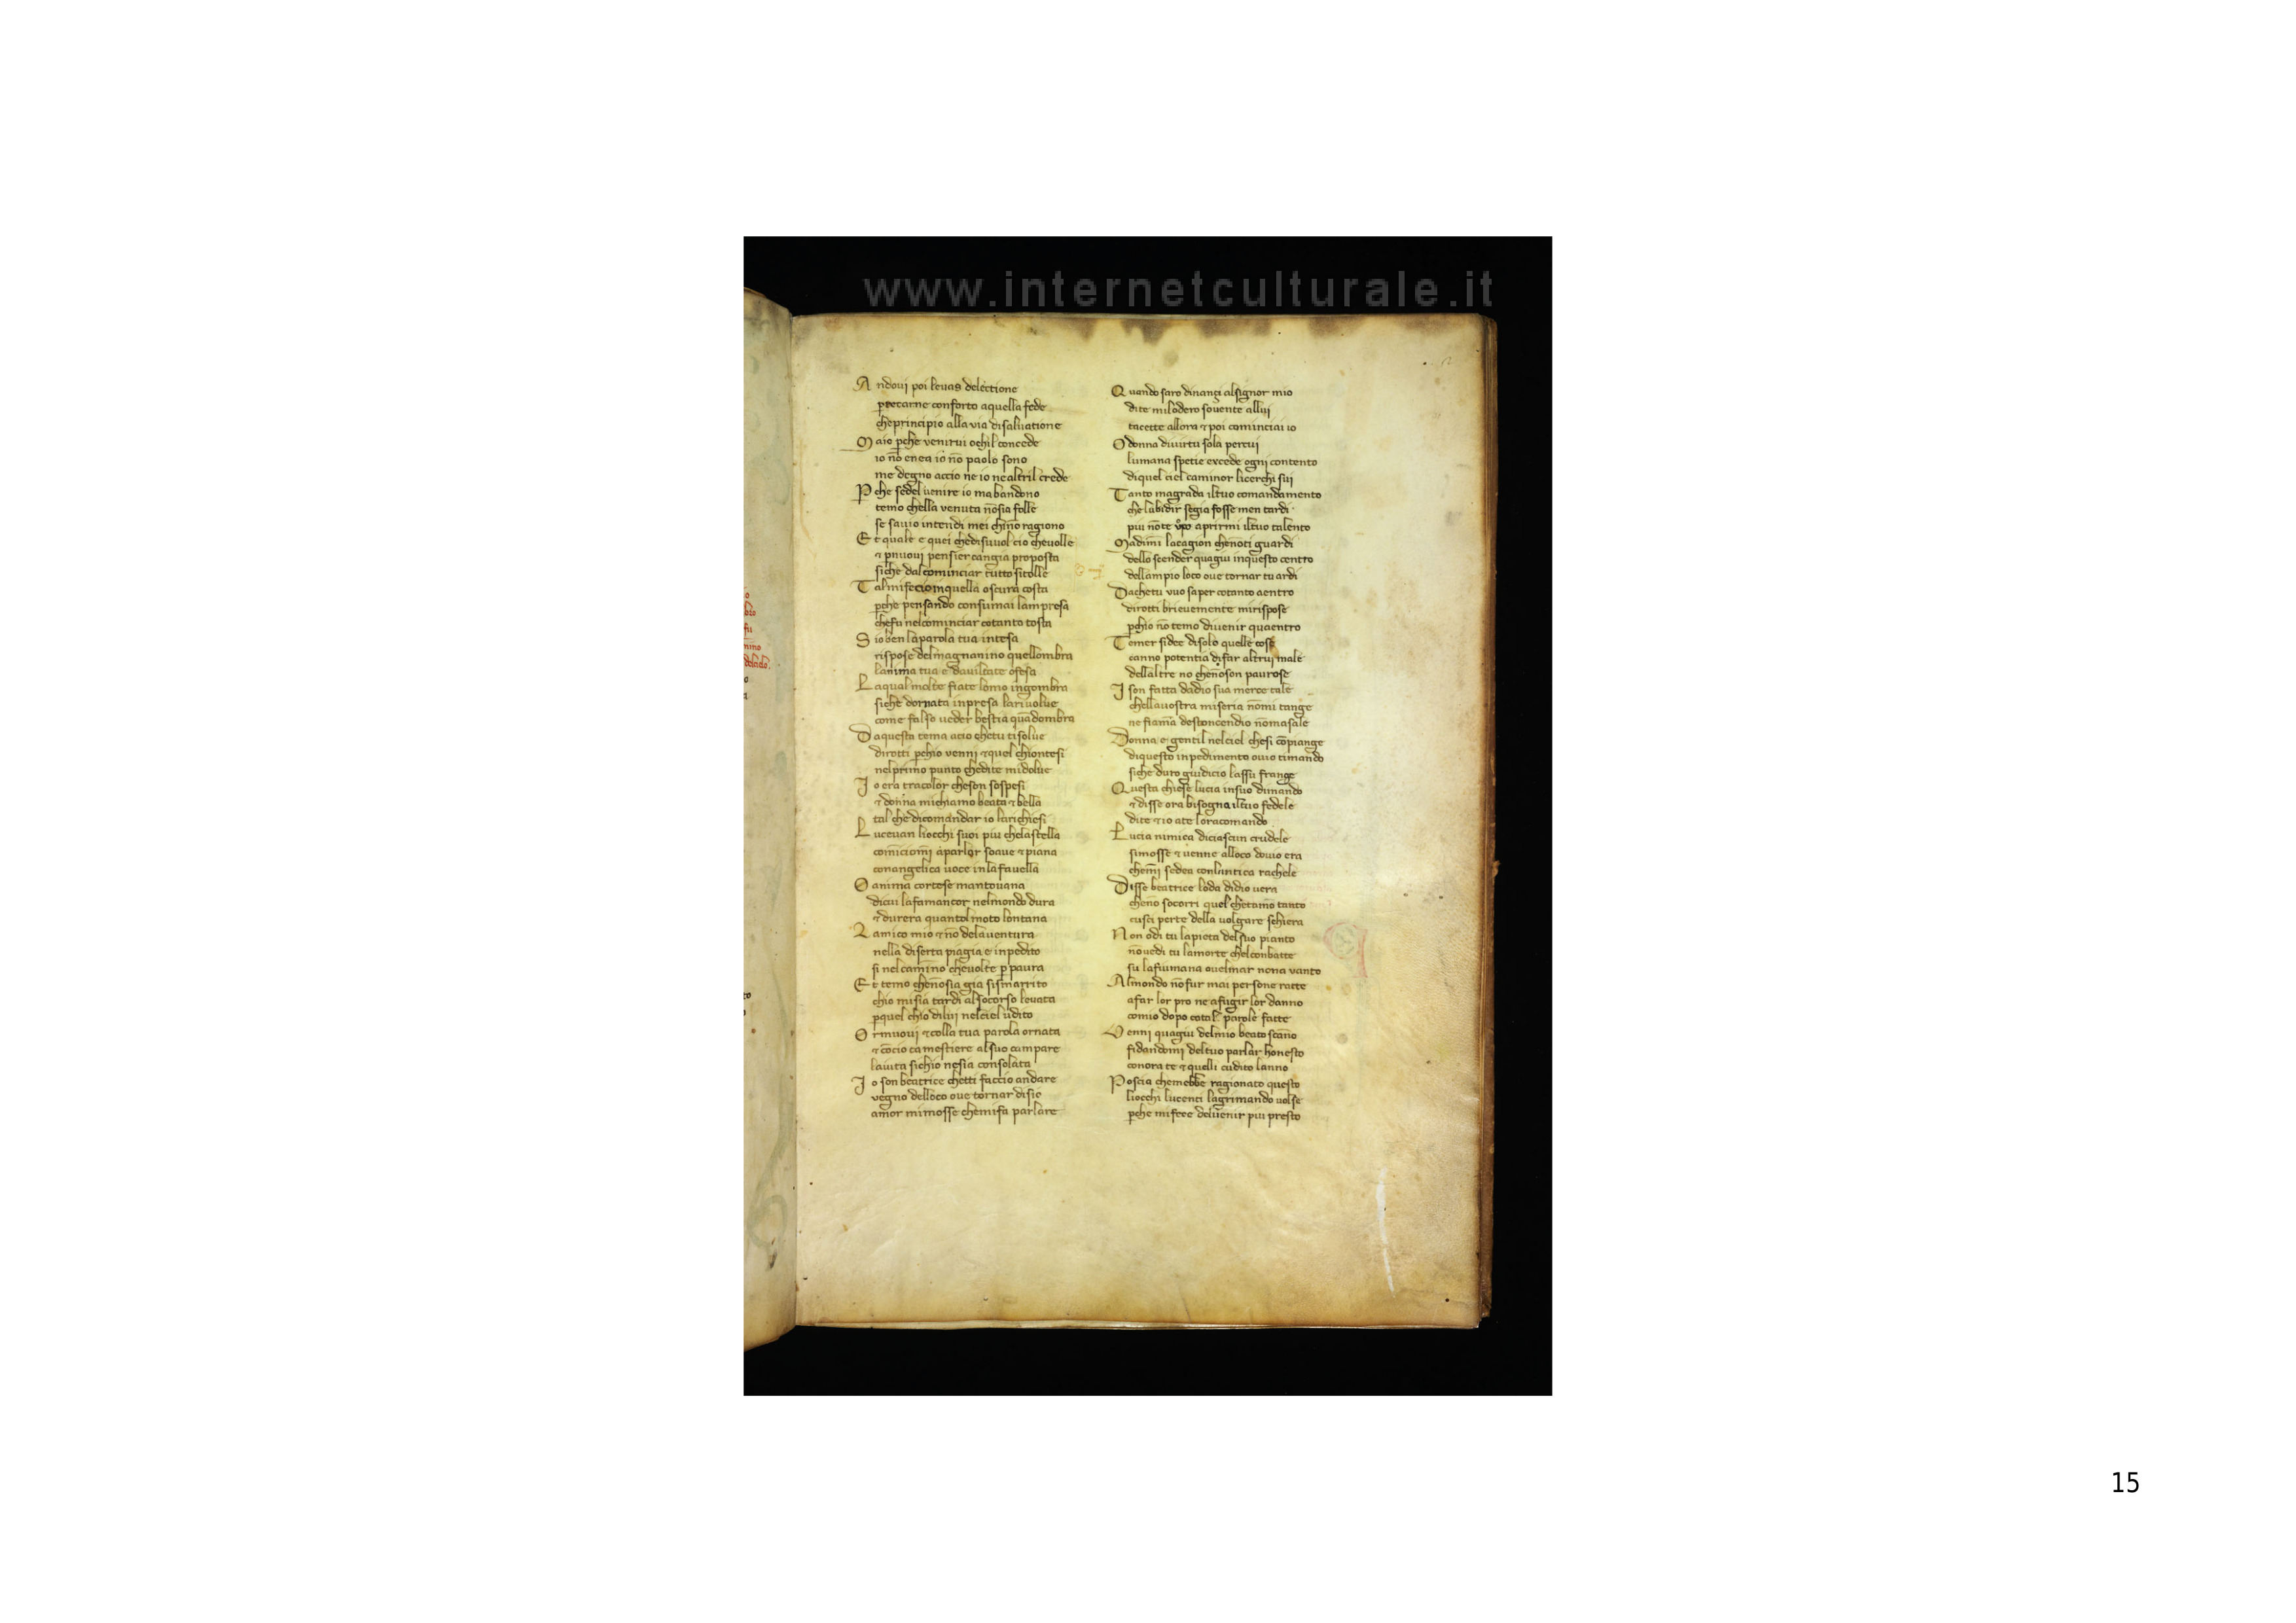 www.internetculturale.it
A ndoui poi leuas delectione
p̲recarne conforto aquella fede
cheprincipio alla via disaluatione
M aio p̲che venirui ochil concede
io nō enea io nō paolo sono
me degno accio ne io nealtril crede
P che sedel uenire io mabandono
temo chella venuta nōsia folle
se sauio intendi mei chino ragiono
E t quale e quei chedisuuol cio cheuolle
⁊ p̲nuoui pensier cangia proposta
siche dalcominciar tutto sitolle
T almifecioinquella oscura costa
p̲che pensando consumai lampresa
chefu nelcominciar cotanto tosta
S ioben laparola tua intesa
rispose delmagnanino quellombra
lanima tua e dauiltate ofesa
L aqual molte fiate lomo ingombra
siche dornata inpresa lariuolue
come falso ueder bestia quādombra
D aquesta tema acio chetu tisolue
dirotti p̲chio venni ⁊quel chiontesi
nelprimo punto chedite midolue
I o era tracolor cheson sospesi
⁊ donna michiamo beata ⁊ bella
tal che dicomandar io larichiesi
L uceuan liocchi suoi piu chelastella
comīciomi aparlar soaue ⁊ piana
conangelica uoce inlafauella
O anima cortese mantouana
dicui lafamancor nelmondo dura
⁊ durera quantol moto lontana
L amico mio ⁊ nō delauentura
nella diserta piagia e inpedito
si nelcamino cheuolte p̲ paura
E t temo chenosia gia sismarrito
chio misia tardi alsocorso leuata
p̲quel chio dilui nelciel udito
O rmuoui ⁊colla tua parola ornata
⁊ cōcio camestiere alsuo campare
laiuta sichio nesia consolata
I o son beatrice chetti faccio andare
vegno delloco oue tornar disio
amor mimosse chemifa parlare
Q uando saro dinanzi alsignor mio
dite milodero souente allui
tacette allora ⁊ poi cominciai io
O donna diuirtu sola percui
lumana spetie excede ogni contento
diquel ciel caminor licerchi sui
T anto magrada iltuo comandamento
che lubidir segia fosse men tardi
piu nōte uopo aprirmi iltuo talento
Madimi lacagion chenoti guardi
dello scender quagiu inquesto centro
dellampio loco oue tornar tu ardi
Dachetu vuo saper cotanto aentro
dirotti brieuemente mirispose
p̲chio nō temo diuenir quaentro
T emer sidee disolo quelle cose
canno potentia difar altrui male
dellaltre no chenoson paurose
I son fatta dadio sua merce tale
chellauostra miseria nōmi tange
ne fiama destoncendio nōmasale
Donna e gentil nelciel chesi cōpiange
diquesto inpedimento ouio timando
siche duro giudicio lassu frange
Q uesta chiese lucia insuo dimando
⁊ disse ora bisogna iltuo fedele
dite ⁊ io ate loracomando
L ucia nimica diciascun crudele
simosse ⁊ uenne alloco douio era
chemi sedea conlantica rachele
Disse beatrice loda didio uera
cheno socorri quel chetamo tanto
cusci perte della uolgare schiera
N on odi tu lapieta delsuo pianto
nōuedi tu lamorte chelconbatte
su lafiumana ouelmar nona vanto
Almondo nōfur mai persone ratte
afar lor pro ne afugir lor danno
comio dopo cotal parole fatte
Venni quagiu delmio beato scāno
fidandomi deltuo parlar honesto
conora te ⁊ quelli cudito lanno
P oscia chemebbe ragionato questo
liocchi lucenti lagrimando uolse
p̲che mifece deluenir piu presto
15